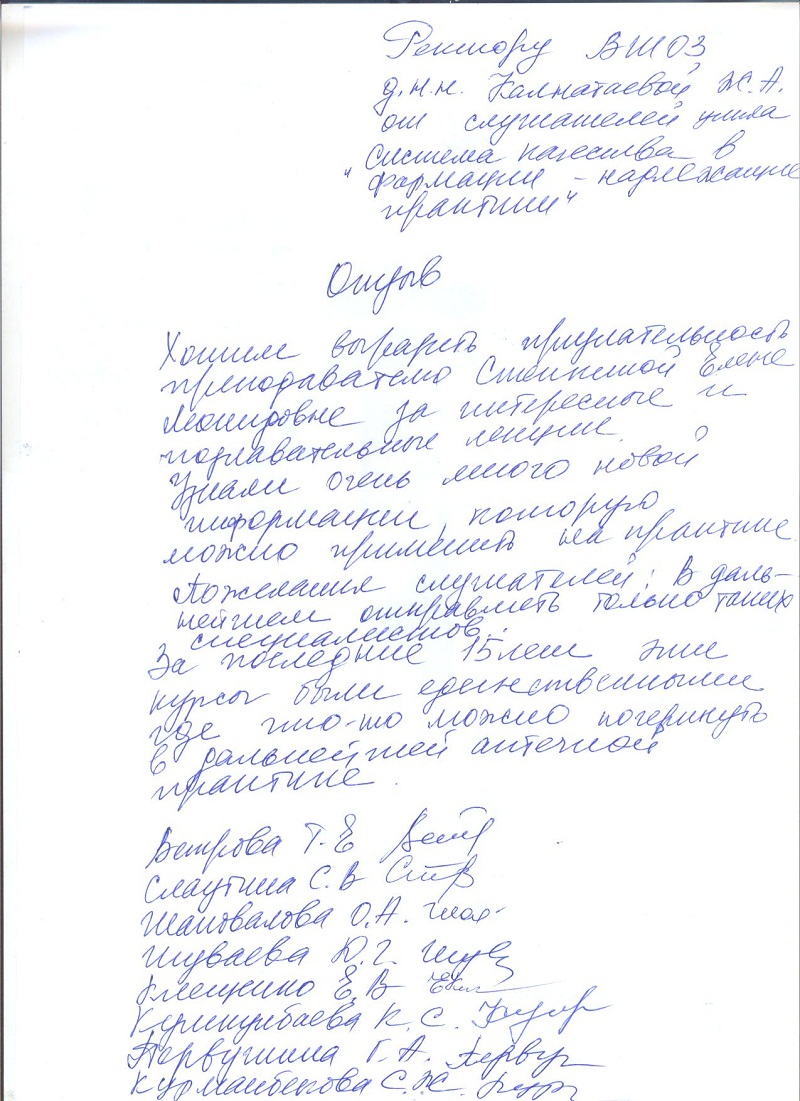 Ректору ВШОЗ
д.м.н. Калматаевой Ж.А.
от слушателей цикла
Система качества в
"фармации – надлежащие
практики"
Отзыв
Хотим выразить признательность
преподавателю Степкиной Елене
за интересные и
познавательные лекции.
Узнали очень много новой
информации, которую
можно применить на практике.
Пожелания слушателей: В даль-
нейшем отправлять только таких
специалистов.
За последние 15 лет эти
курсы были единственными
где что-то можно почеркнуть
в дальнейшей аптечной
практике.
Ветрова Т.Е
Слаутина С.В
Шаповалова О.А.
Шуваева Ю.Г.
Клещенко Е.В
К.С.
Первушина Г.А.
Курманбекова С.Ж.